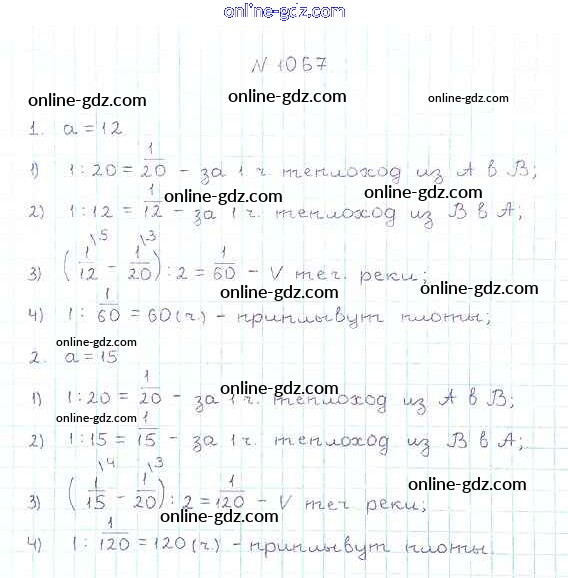 online-gdz.com
N 1067
online-gdz.com online-gdz.com online-gdz.com
1. a = 12
1) 1 : 20 = 1/20 - за 1 ч. теплоход из A в B;
online-gdz.com online-gdz.com
2) 1 : 12 = 1/12 - за 1 ч. теплоход из B в A;
3) (1/12 \5 - 1/20 \3) : 2 = 1/60 - V теч. реки;
online-gdz.com online-gdz.com
4) 1 : 1/60 = 60 (ч.) - приплывут плоты;
online-gdz.com
2. a = 15
online-gdz.com
1) 1 : 20 = 1/20 - за 1 ч. теплоход из A в B;
online-gdz.com online-gdz.com
2) 1 : 15 = 1/15 - за 1 ч. теплоход из B в A;
online-gdz.com
3) (1/15 \4 - 1/20 \3) : 2 = 1/120 - V теч реки;
online-gdz.com
4) 1 : 1/120 = 120 (ч.) - приплывут плоты.
online-gdz.com